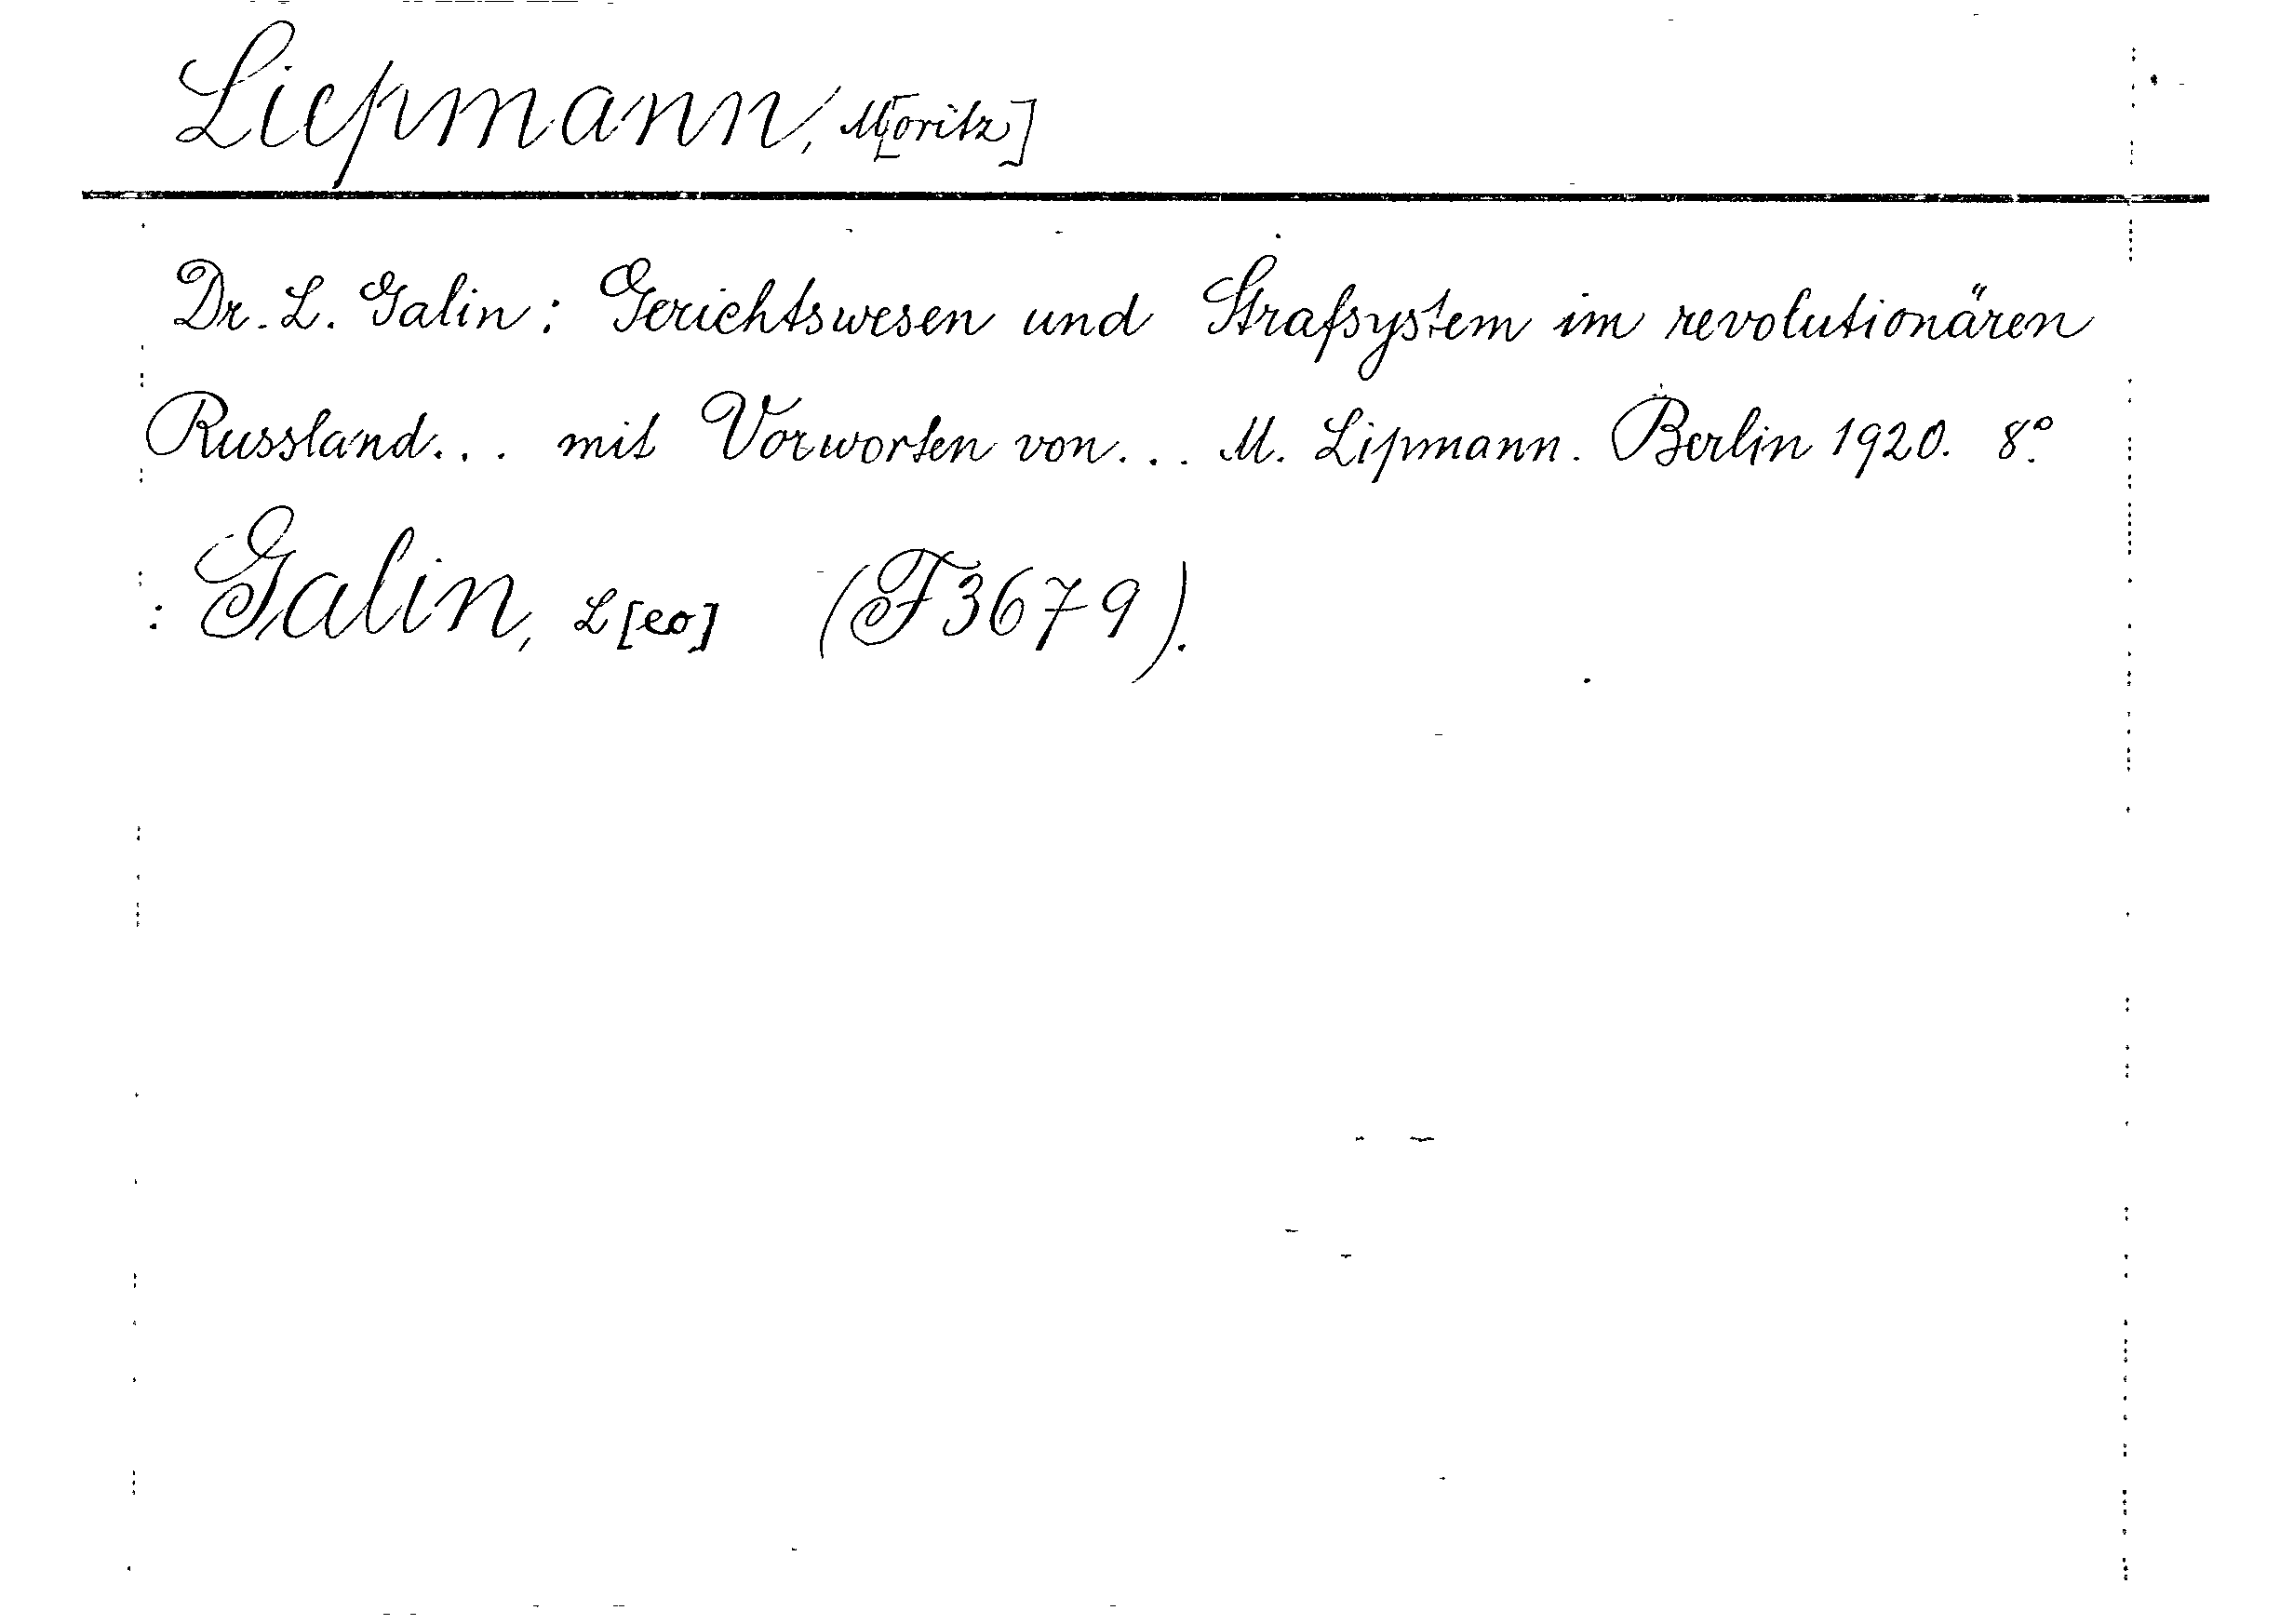 Liepmann, M[oritz]
Dr. L. Galin: Gerichtswesen und Strafsystem im revolutionären
Russland... mit Vorworten von... M. Lipmann. Berlin 1920. 8°.
: Galin, L[eo] (F3679).